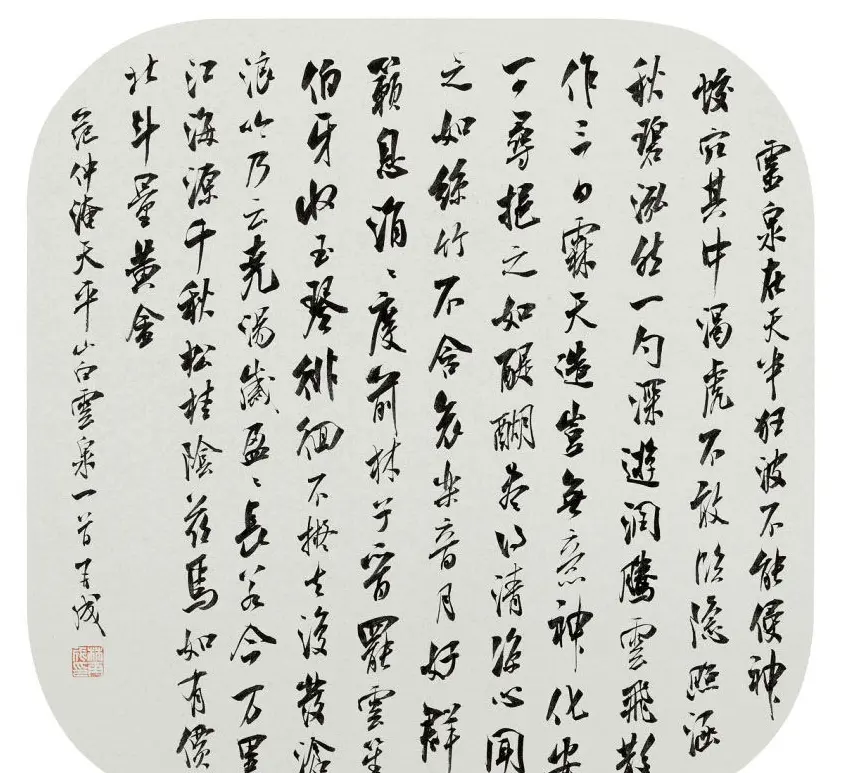 靈泉在天半狂波不能侵神
蛟穴其中渴虎不敢臨隱照涵
秋碧泓然一勺深遊潤騰雲飛散
作三日霖天造豈無意神化安
可尋挹之如醍醐盡得清涼心聞
之如絲竹不含哀樂音月好群
籟息涓〻度前林子晉罷雲笙
伯牙收玉琴徘徊不擬去復發滄
浪吟乃云堯湯歲盈〻長若今万里
江海源千秋松桂陰茲焉如有價
北斗量黃金
范仲淹天平山白雲泉一首 成